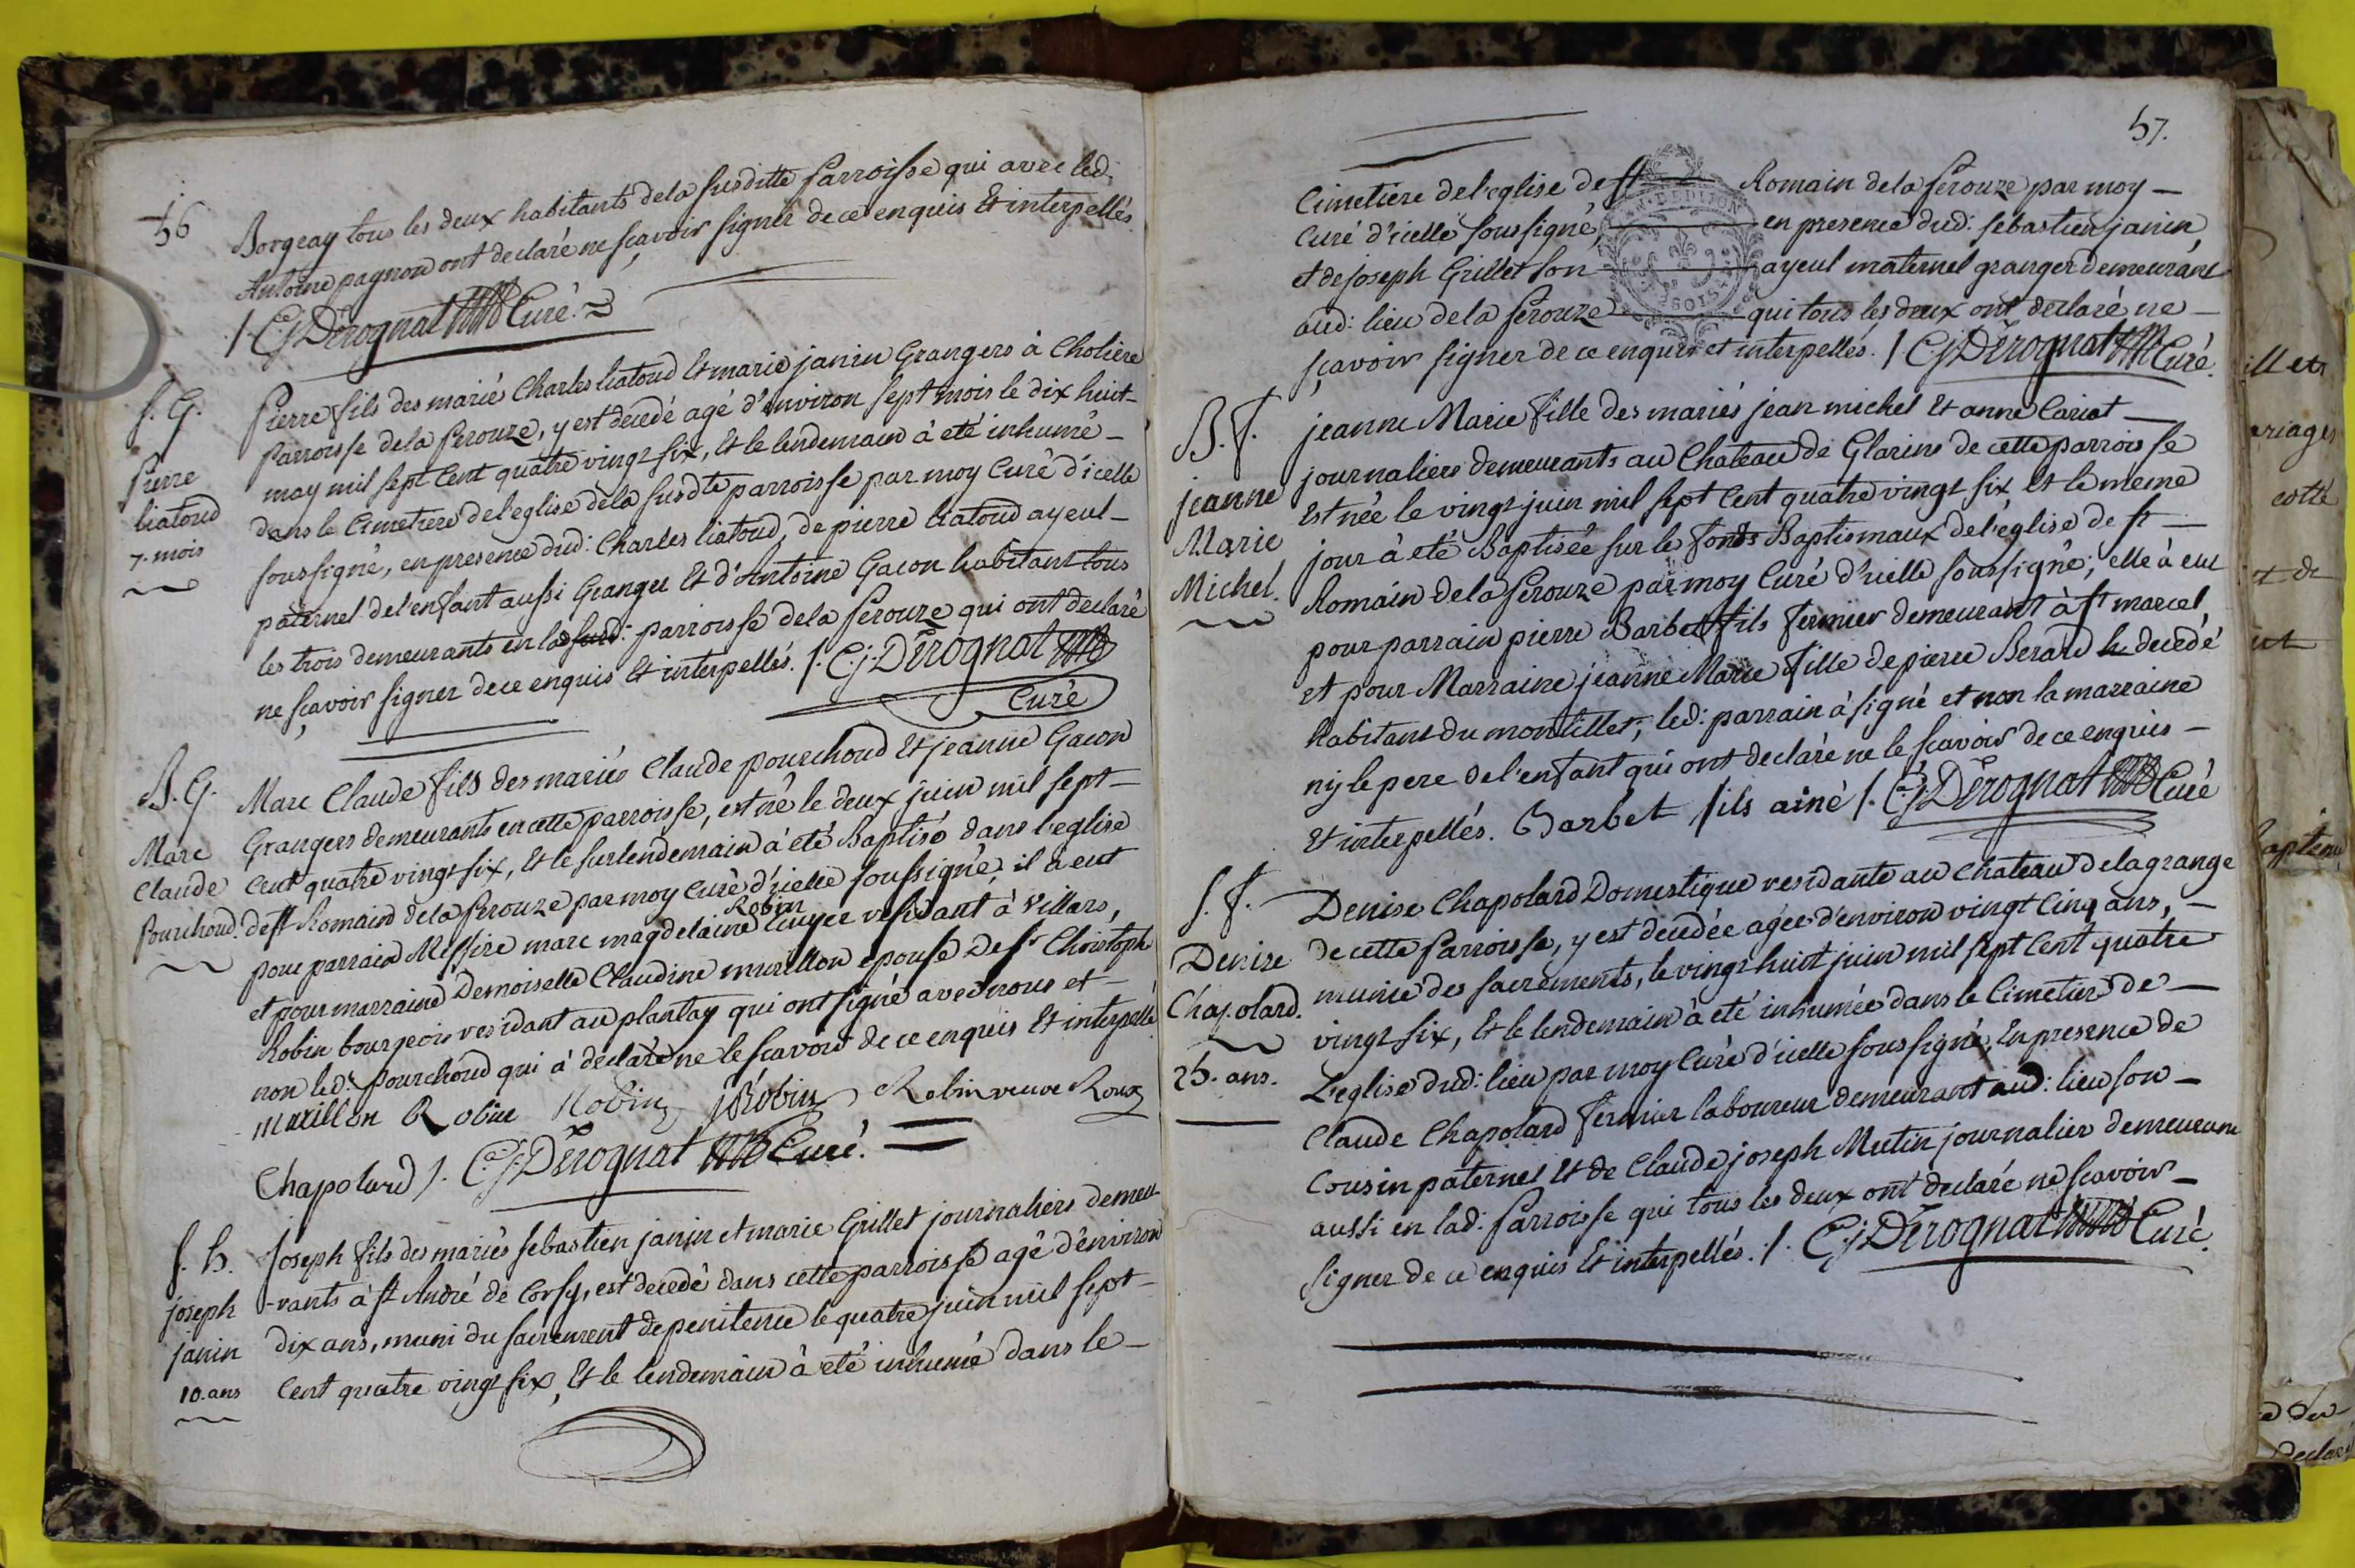 56
Borgeay tous les deux habitants de la susditte parroisse qui avec led:
Antoine pagnon ont declaré ne sçavoir signer de ce enquis Et interpellés.
/. C.j. Dérognat Curé.
S. G.
Pierre
liatoud
7. mois
Pierre fils des mariés Charles liatoud Et marie janin Grangers à Choliere
parroisse de la perouze, y est decedé agé d'environ sept mois le dix huit
may mil sept Cent quatre vingt six, Et le lendemain à eté inhumé
dans le Cimetiere de l'eglise de la susdte parroisse par moy Curé d'icelle
soussigné, en presence dud: Charles liatoud, de pierre liatoud ayeul
paternel de l'enfant aussi Granger Et d'Antoine Gacon habitant tous
les trois demeurants en lad: parroisse de la perouze qui ont declaré
ne sçavoir signer de ce enquis Et interpellés. /. C.j. Dérognat
Curé
B. G.
Marc
Claude
pourchoud.
Marc Claude fils des mariés Claude pourchoud Et jeanne Gacon
Grangers demeurants en cette parroisse, est né le deux juin mil sept
Cent quatre vingt six, Et le surlendemain à eté Baptisé dans l'eglise
de st Romain de la perouze par moy Curé d'icelle soussigné, il à eut
Robin
pour parrain Messire marc magdelaine Ecuyer residant à Villars,
et pour marraine Demoiselle Claudine murillon epouse De Sr Christoph
Robin bourgeois residant au plantay qui ont signé avec nous et
non led: pourchoud qui à declaré ne le sçavoir de ce enquis Et interpellé
murillon Robin Robin Robin Robin veuve Roux
Chapolard /. C.j. Dérognat Curé.
S. G.
joseph
janin
10. ans
Joseph fils des mariés sebastien janin et marie Grillet journaliers demeu-
-rants à st André de Corsy, est decedé dans cette parroisse agé d'environ
dix ans, muni du sacrement de penitence le quatre juin mil sept
Cent quatre vingt six, Et le lendemain à eté inhumé dans le
57.
Cimetiere de l'eglise de st Romain de la perouze par moy
Curé d'icelle soussigné, en presence dud: sebastien janin,
et de joseph Grillet son ayeul maternel granger demeurant
aud: lieu de la perouze qui tous les deux ont declaré ne
sçavoir signer de ce enquis et interpellés. /. C.j. Dérognat Curé.
B. f.
jeanne
Marie
Michel.
jeanne Marie fille des mariés jean michel Et anne Cariat
journaliers demeurants au Chateau de Glarins de cette parroisse
Est née le vingt juin mil sept Cent quatre vingt six Et le meme
jour à eté Baptisée sur les fonds Baptismaux de l'église de st
Romain de la perouze par moy Curé d'icelle soussigné; elle à eut
pour parrain pierre Barbet fils fermier demeurant à st marcel,
et pour Marraine jeanne Marie fille de pierre Berard decedé
habitant du montillet, led: parrain à signé et non la marraine
nÿ le pere de l'enfant qui ont declaré ne le sçavoir de ce enquis
Et interpellés. Barbet fils ainé /. C.j. Dérognat Curé
S. f.
Denise
Chapolard.
25. ans.
Denise Chapolard Domestique residante au Chateau de la grange
de cette parroisse, y est decedée agée d'environ vingt Cinq ans,
munie des sacrements, le vingt huit juin mil sept Cent quatre
vingt six, Et le lendemain à eté inhumée dans le Cimetiere de
L'eglise dud: lieu par moy Curé d'icelle soussigné, En presence de
Claude Chapolard fermier laboureur demeurant aud: lieu son
Cousin paternel Et de Claude joseph Mutin journalier demeurant
aussi en lad: parroisse qui tous les deux ont declaré ne sçavoir
signer de ce enquis Et interpellés. /. C.j. Dérognat Curé.